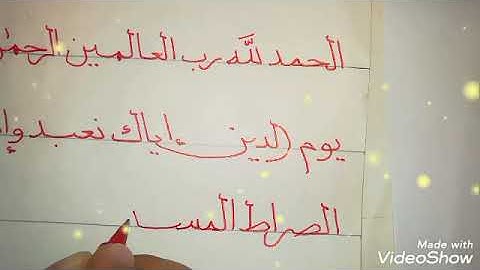 الحمد للَّه رب العالمين الرحمٰ
يوم الدين إياك نعبد وإ
الصراط المسـ
Made with
VideoShow